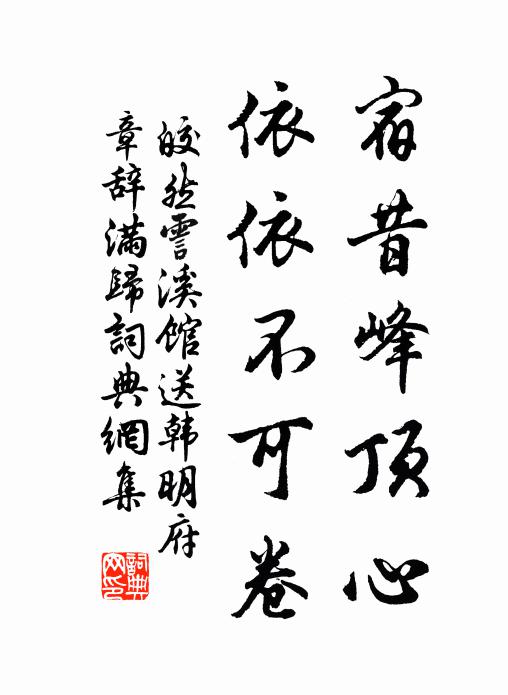 宿昔峰頂心
依依不可卷
皎然雲溪館送韩明府
章辞满歸詞典網集
詞典網印